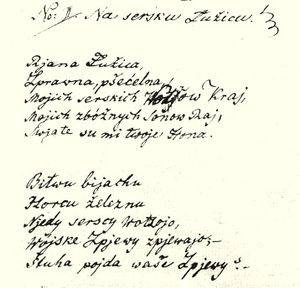 No: 1. Na serbsku Łužicu.
Rjana Łužica,
Zprawna, pśećelna,
Mojich serskich Wótcow Kraj,
Mojich zbóžnych Sonow Raj,
Swjate su mi twoje Hona.
Bitwu bijachu
Horcu železnu
Njedy serscy Wotzojo,
Wójske Zpjewy zpjewajo;–
Štuha pojda waše Zpjewy?–